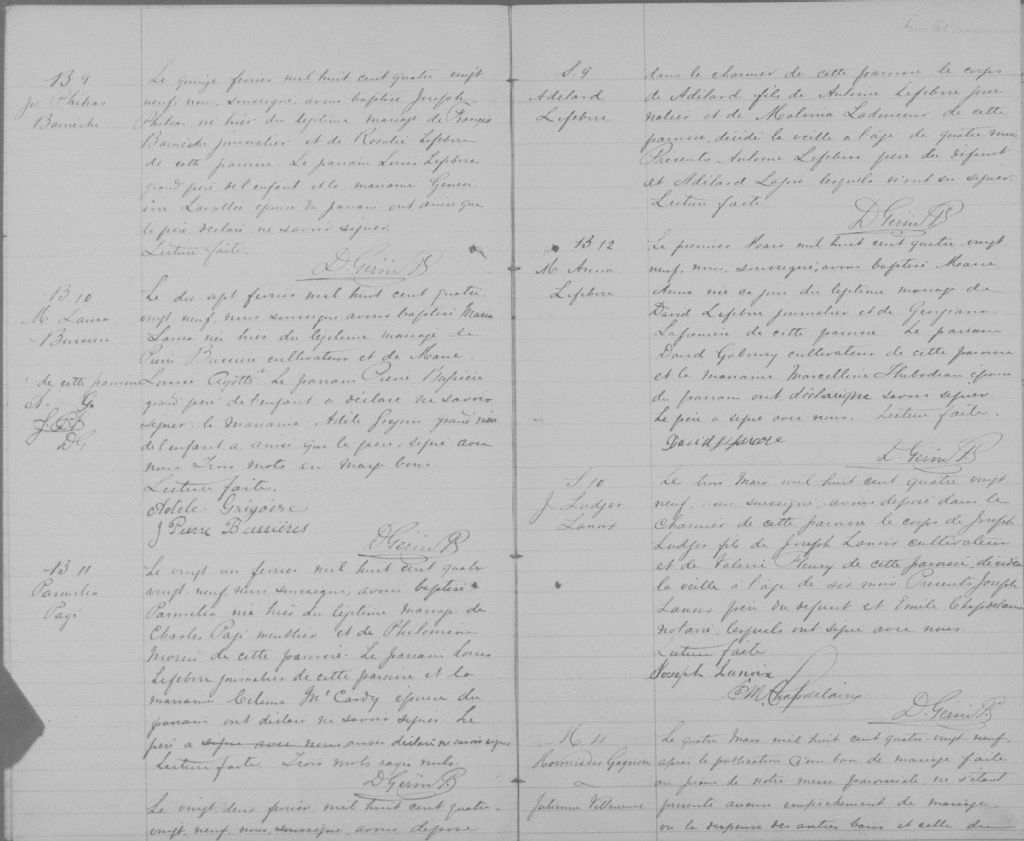 B 9
Jos Philias
Barnèche
Le quinze février mil huit cent quatre-vingt
neuf, nous, soussigné, avons baptisé Joseph
Philias né hier du légitime mariage de François
Barnèche journalier et de Rosalie Lefebvre
de cette paroisse. Le parrain Louis Lefebvre
grand père de l'enfant et la marraine Genevi-
ève Lavallée épouse du parrain ont, ainsi que
le père, déclaré ne savoir signer.
Lecture faite.
D. Gérin Ptr
B 10
M Laura
Bussière
de cette paroisse
A. G.
J. P. B
D G
Le dix sept février mil huit cent quatre-
vingt neuf, nous soussigné avons baptisé Marie
Laura née hier du légitime mariage de
Pierre Bussière cultivateur et de Marie
Louise Ayotte Le parrain Pierre Bussière
grand père de l'enfant a déclaré ne savoir
signer. la Marraine Adèle Grégoire grand'mère
de l'enfant a ainsi que le père, signé avec
nous. Trois mots en marge bons.
Lecture faite.
Adele Grégoire
J Pierre Bussières
D. Gérin Ptr
B 11
Parmelia
Pagé
Le vingt un février mil huit cent quatre
vingt-neuf, nous, soussigné, avons baptisé
Parmelia née hier du légitime mariage de
Charles Pagé meublier et de Philomène
Morin de cette paroisse. Le parrain Louis
Lefebvre journalier de cette paroisse et la
marraine Célima McCardy épouse du
parrain ont déclaré ne savoir signer. Le
père a signé avec nous aussi déclaré ne savoir signer
Lecture faite. Trois mots rayés nuls.
D Gérin Ptr
Le vingt deux février mil huit cent quatre-
vingt-neuf, nous, soussigné, avons déposé
S. 9
Adélard
Lefebvre
dans le charnier de cette paroisse le corps
de Adélard fils de Antoine Lefebvre jour-
nalier et de Malvina Ladouceur de cette
paroisse, décédé la veille à l'âge de quatre mois
Présents Antoine Lefebvre père du défunt
et Adélard lesquels n'ont su signer.
Lecture faite.
D Gérin Ptr
B 12
M Anna
Lefebvre
Le premier Mars mil huit cent quatre-vingt
neuf, nous, soussigné, avons baptisé Marie
Anna née ce jour du légitime mariage de
David Lefebvre journalier et de Georgiana
de cette paroisse. Le parrain
David Gaboury cultivateur de cette paroisse
et la marraine Marcelline Thibodeau épouse
du parrain ont déclaré ne savoir signer
Le père a signé avec nous. Lecture faite.
David Lefevre
D. Gérin Ptr
S. 10
J Ludger
Lanoix
Le trois Mars mil huit cent quatre vingt
neuf, nous soussigné, avons déposé dans le
charnier de cette paroisse le corps de Joseph
Ludger fils de Joseph Lanoix cultivateur
et de Valérie Fleury de cette paroisse, décédé
la veille à l'âge de six mois. Présents Joseph
Lanoix père du défunt et Emile Chapdelaine
notaire, lesquels ont signé avec nous.
Lecture faite
Joseph Lanoix
E M Chapdelaine
D. Gérin Ptr.
M. 11
Hormisdas Gagnon
Julienne Villeneuve
Le quatre Mars mil huit cent quatre-vingt neuf
après la publication d'un ban de mariage faite
au prône de notre messe paroissiale ne s'étant
présenté aucun empêchement de mariage
vu la dispense des autres bans et celle du